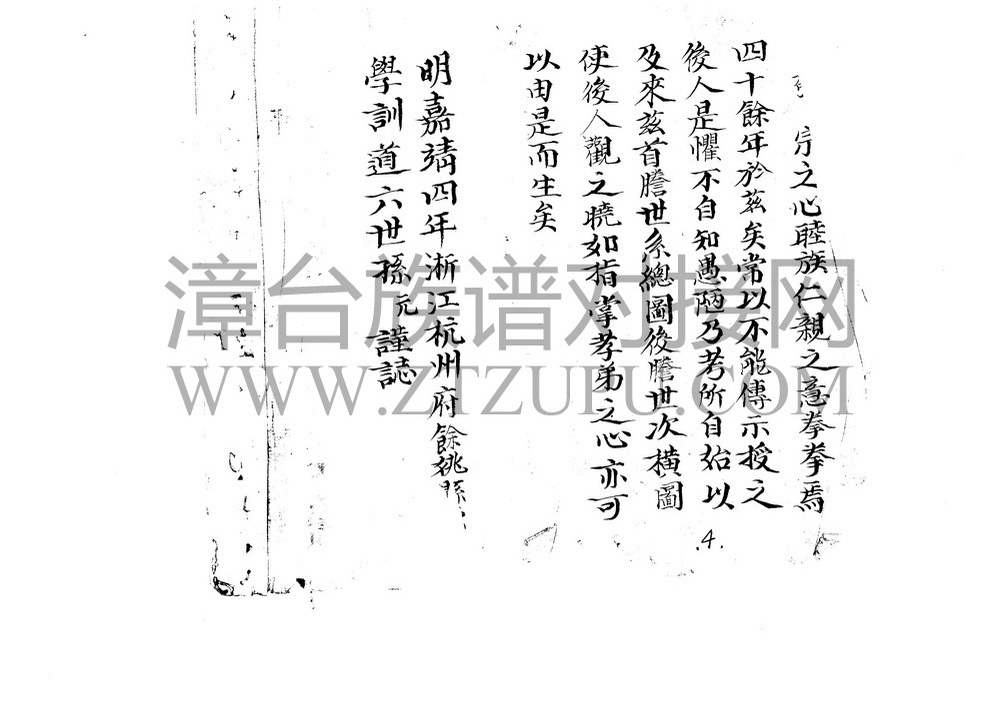 之心睦族仁親之意拳拳焉
四十餘年於兹矣常以不能傳示授之
後人是懼不自知愚陋乃考所自始以
及來兹首謄世系總圖後謄世次横圖
使後人觀之曉如指掌孝弟之心亦可
以由是而生矣
明嘉靖四年浙江杭州府餘姚縣
學訓道六世孫元謹誌
.4.
漳台族谱对接网
WWW.ZTZUPU.COM